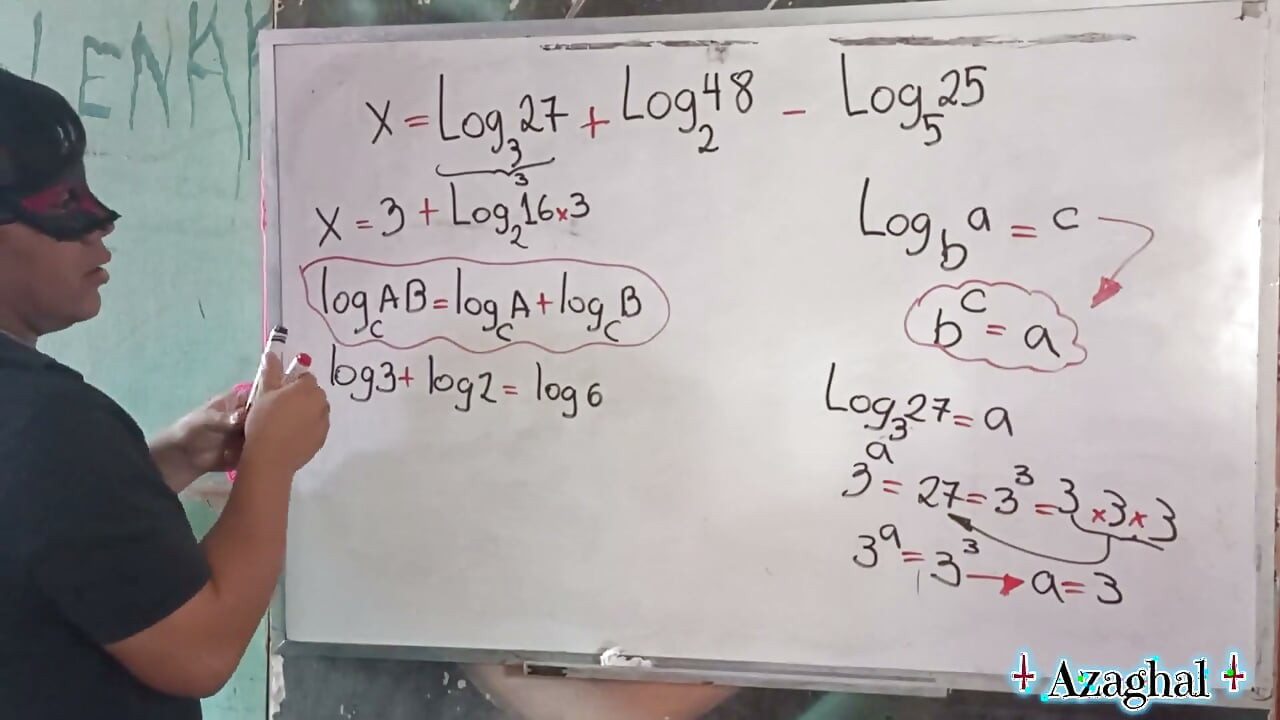 LENK
X = Log₃27 + Log₂48 − Log₅25
3
X = 3 + Log₂16×3
log_C AB = log_C A + log_C B
log3 + log2 = log6
Log_b a = c
b^c = a
Log₃27 = a
3^a = 27 = 3³ = 3×3×3
3^a = 3³ → a = 3
Azaghal